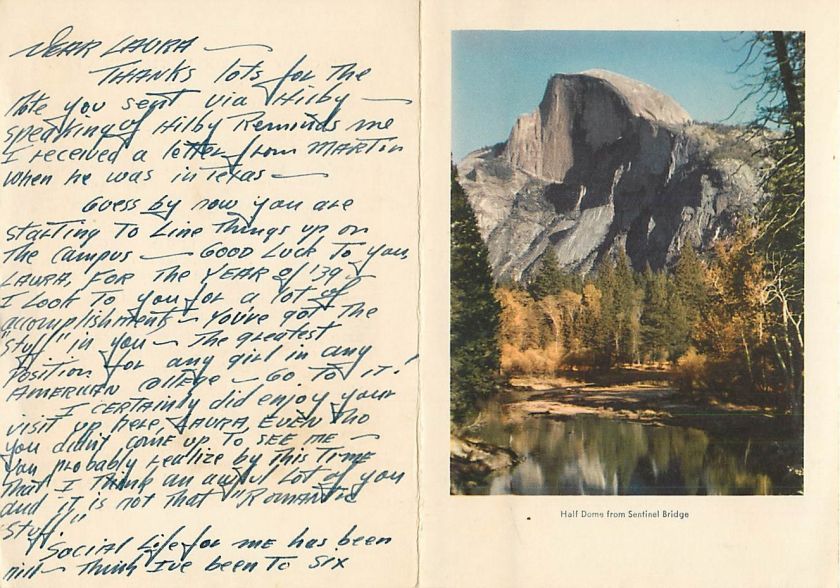 DEAR LAURA —
THANKS lots for the
Note you sent via Hilby —
speaking of Hilby Reminds me
I received a letter from MARTIN
when he was in Texas —
Guess by now you are
starting To Line Things up on
the Campus — GOOD LUCK To you
LAURA, FOR The YEAR of '39 —
I Look To you for a lot of
accomplishments — You've got The
"stuff" in you — The greatest
Position for any girl in any
AMERICAN college — GO TO IT!
I CERTAINly did enjoy your
visit up here, LAURA, EVEN Tho
you didn't come up To SEE ME —
You probably realize by This Time
That I Think an awful Lot of you
and it is not That "Romantic
stuff."
Social Life for me has been
nill — Think I've been To six
Half Dome from Sentinel Bridge